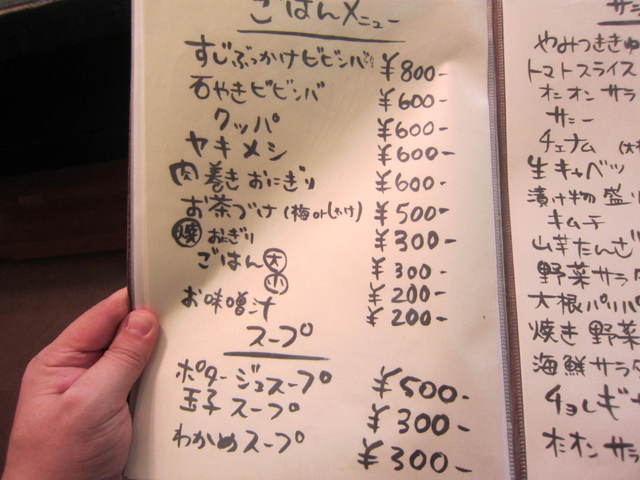 ごはんメニュー
すじぶっかけビビンバ ¥800-
石やきビビンバ ¥600-
クッパ ¥600-
ヤキメシ ¥600-
肉巻きおにぎり ¥600-
お茶づけ(梅orしゃけ) ¥500-
焼おにぎり ¥300-
ごはん大 ¥300-
小 ¥200-
お味噌汁 ¥200-
スープ
ポタージュスープ ¥500-
玉子スープ ¥300-
わかめスープ ¥300-
サラ
やみつききゅ
トマトスライス
オニオンサラ
サニー
チェナム
生キャベツ
漬け物盛り
キムチ
山芋たんざ
野菜サラダ
大根パリパ
焼き野菜
海鮮サラダ
チョレギサ
オニオンサラ